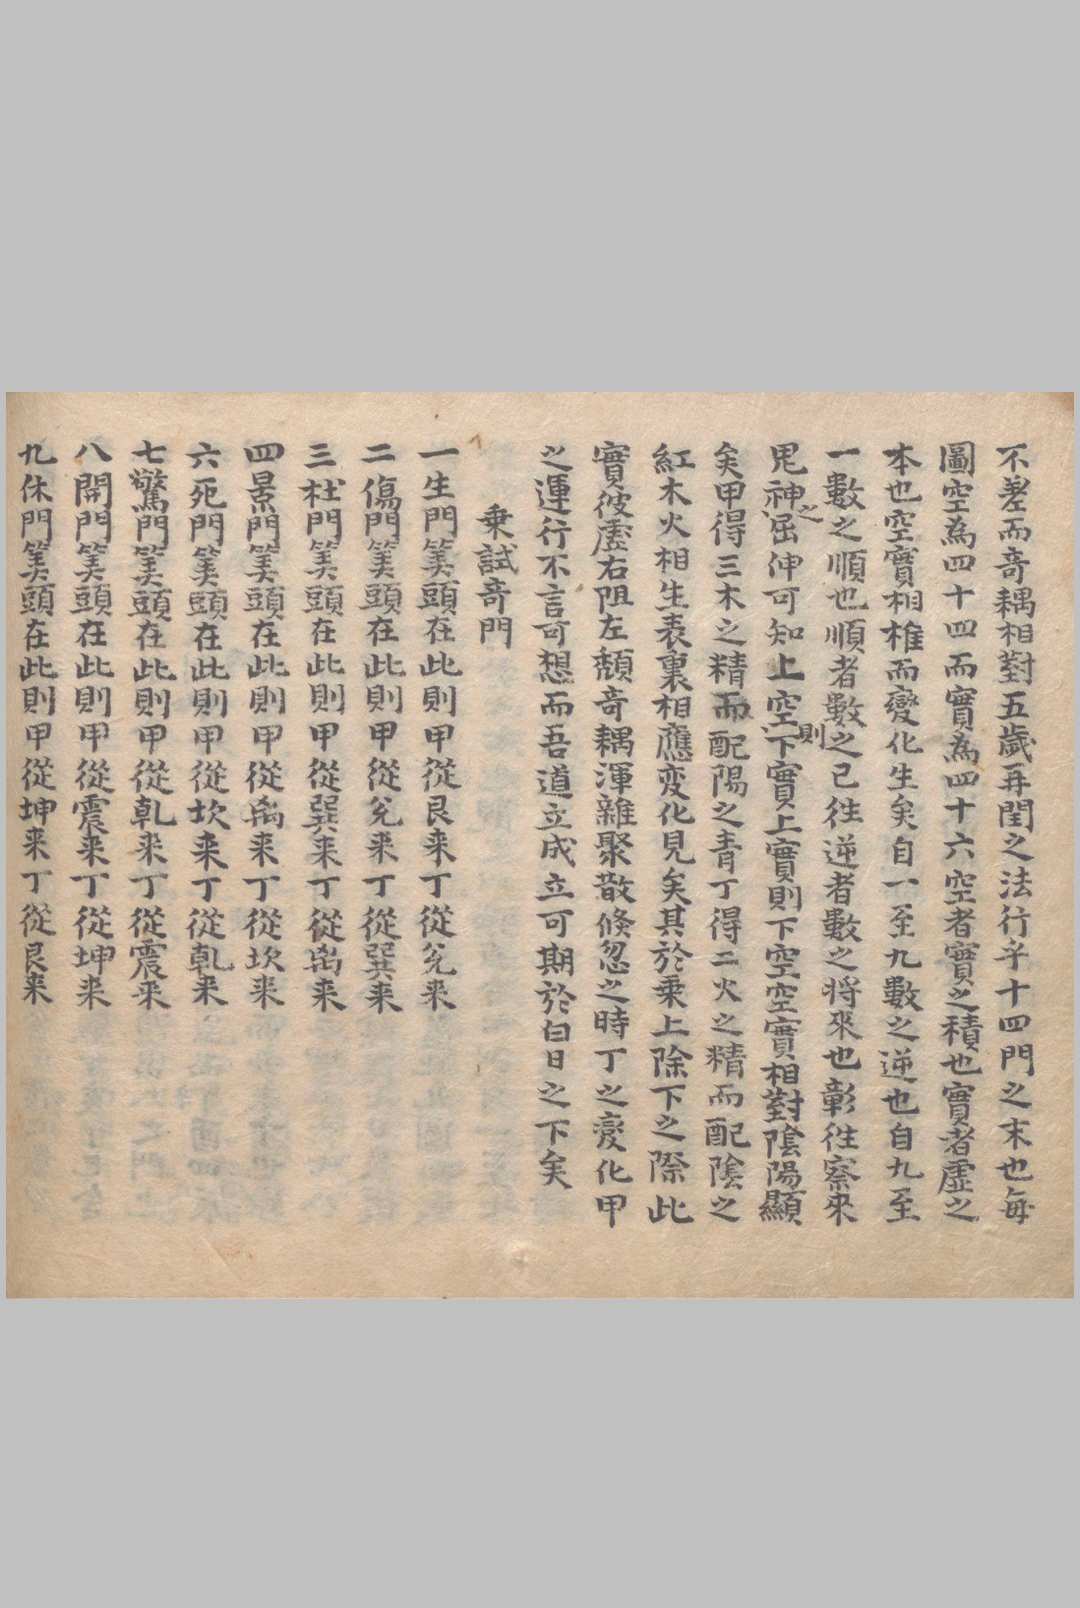 不差而奇耦相對五歲再閏之法行乎十四門之末也每
圖空為四十四而實為四十六空者實之積也實者虛之
本也空實相推而變化生矣自一至九數之逆也自九至
一數之順也順者數之已往逆者數之將來也彰往察來
鬼神之屈伸可知上空則下實上實則下空空實相對陰陽顯
矣甲得三木之精而配陽之青丁得二火之精而配陰之
紅木火相生表裏相應变化見矣其於乘上除下之際此
實彼虛右阻左頹奇耦渾雜聚散倏忽之時丁之变化甲
之運行不言可想而吾道立成立可期於白日之下矣
乘試奇門
一生門筭頭在此則甲從艮来丁從兌来
二傷門筭頭在此則甲從兌来丁從巽来
三杜門筭頭在此則甲從巽来丁從离来
四景門筭頭在此則甲從离来丁從坎来
六死門筭頭在此則甲從坎来丁從乹来
七驚門筭頭在此則甲從乹来丁從震来
八開門筭頭在此則甲從震来丁從坤来
九休門筭頭在此則甲從坤来丁從艮来